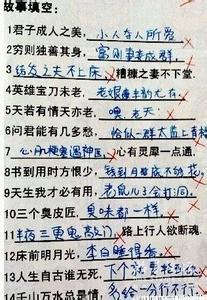 故事填空:
1君子成人之美, 小人夺人所爱
2穷则独善其身, 富则妻妾成群,
3结发之夫不上床, 糟糠之妻不下堂.
4英雄宝刀未老, 老娘
5天若有情天亦老. 噢,老天
6问君能有几多愁, 恰似一群太监上青楼
7心肌梗塞遇神医, 心有灵犀一点通.
8书到用时方恨少, 钱到月底不
9天生我才必有用, 老鼠儿子会打洞.
10三个臭皮匠, 臭味都一样,
11半夜三更鬼敲门, 路上行人欲断魂.
12床前明月光, 李白睡得香,
13人生自古谁无死, 下个就要轮到你
14千山万水总是情 多给一分行不行.